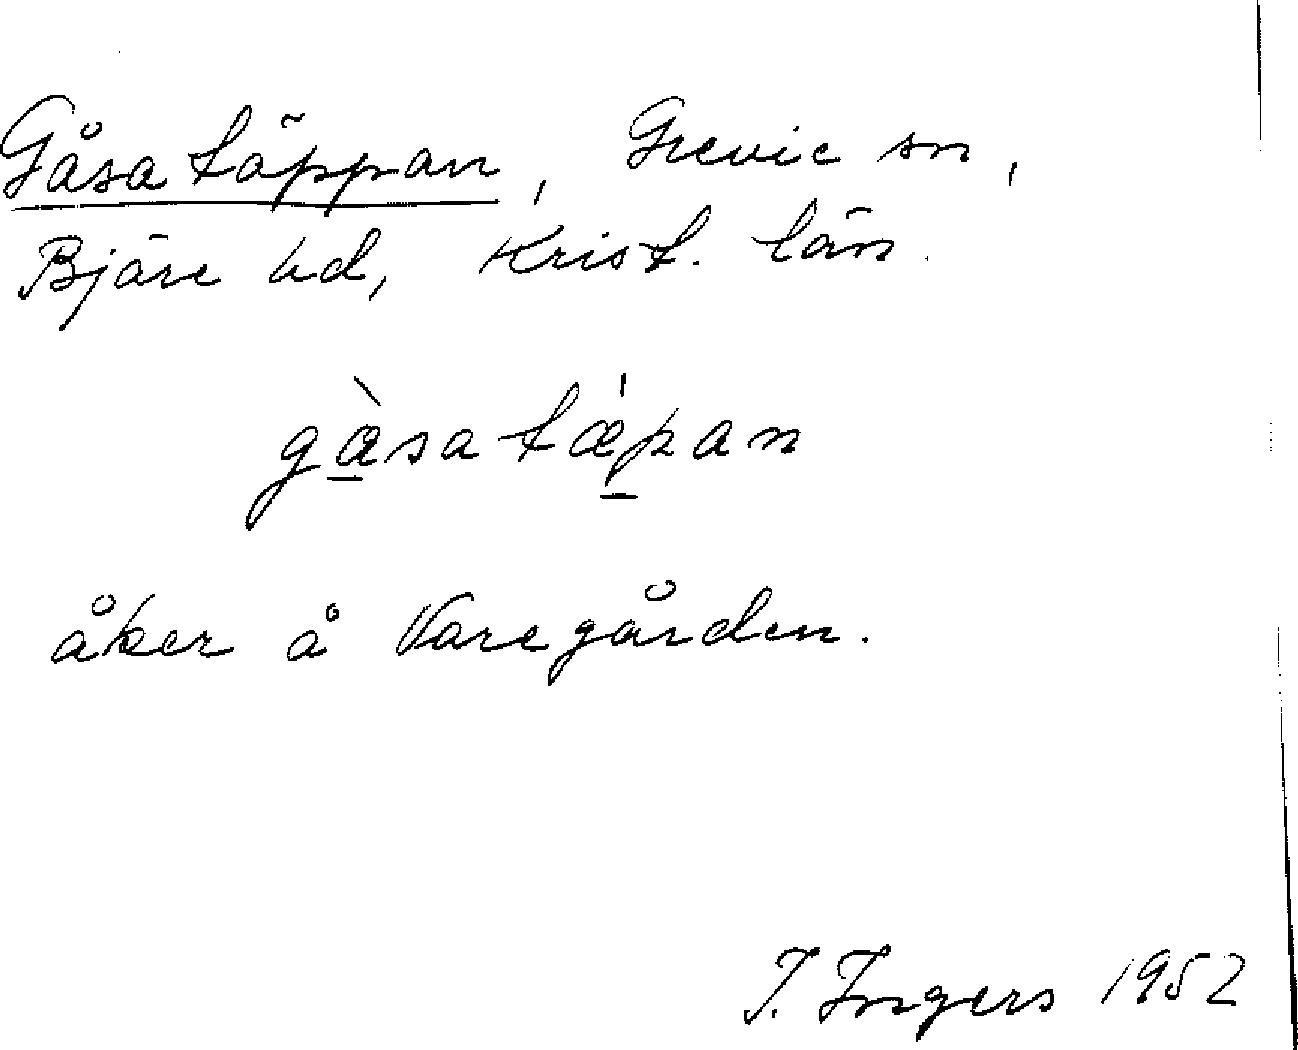 Gåsatäppan, Grevie sn,
Bjäre hd, Krist. län.
gæ̀satǽpan
åker å Varegården.
I. Ingers 1952